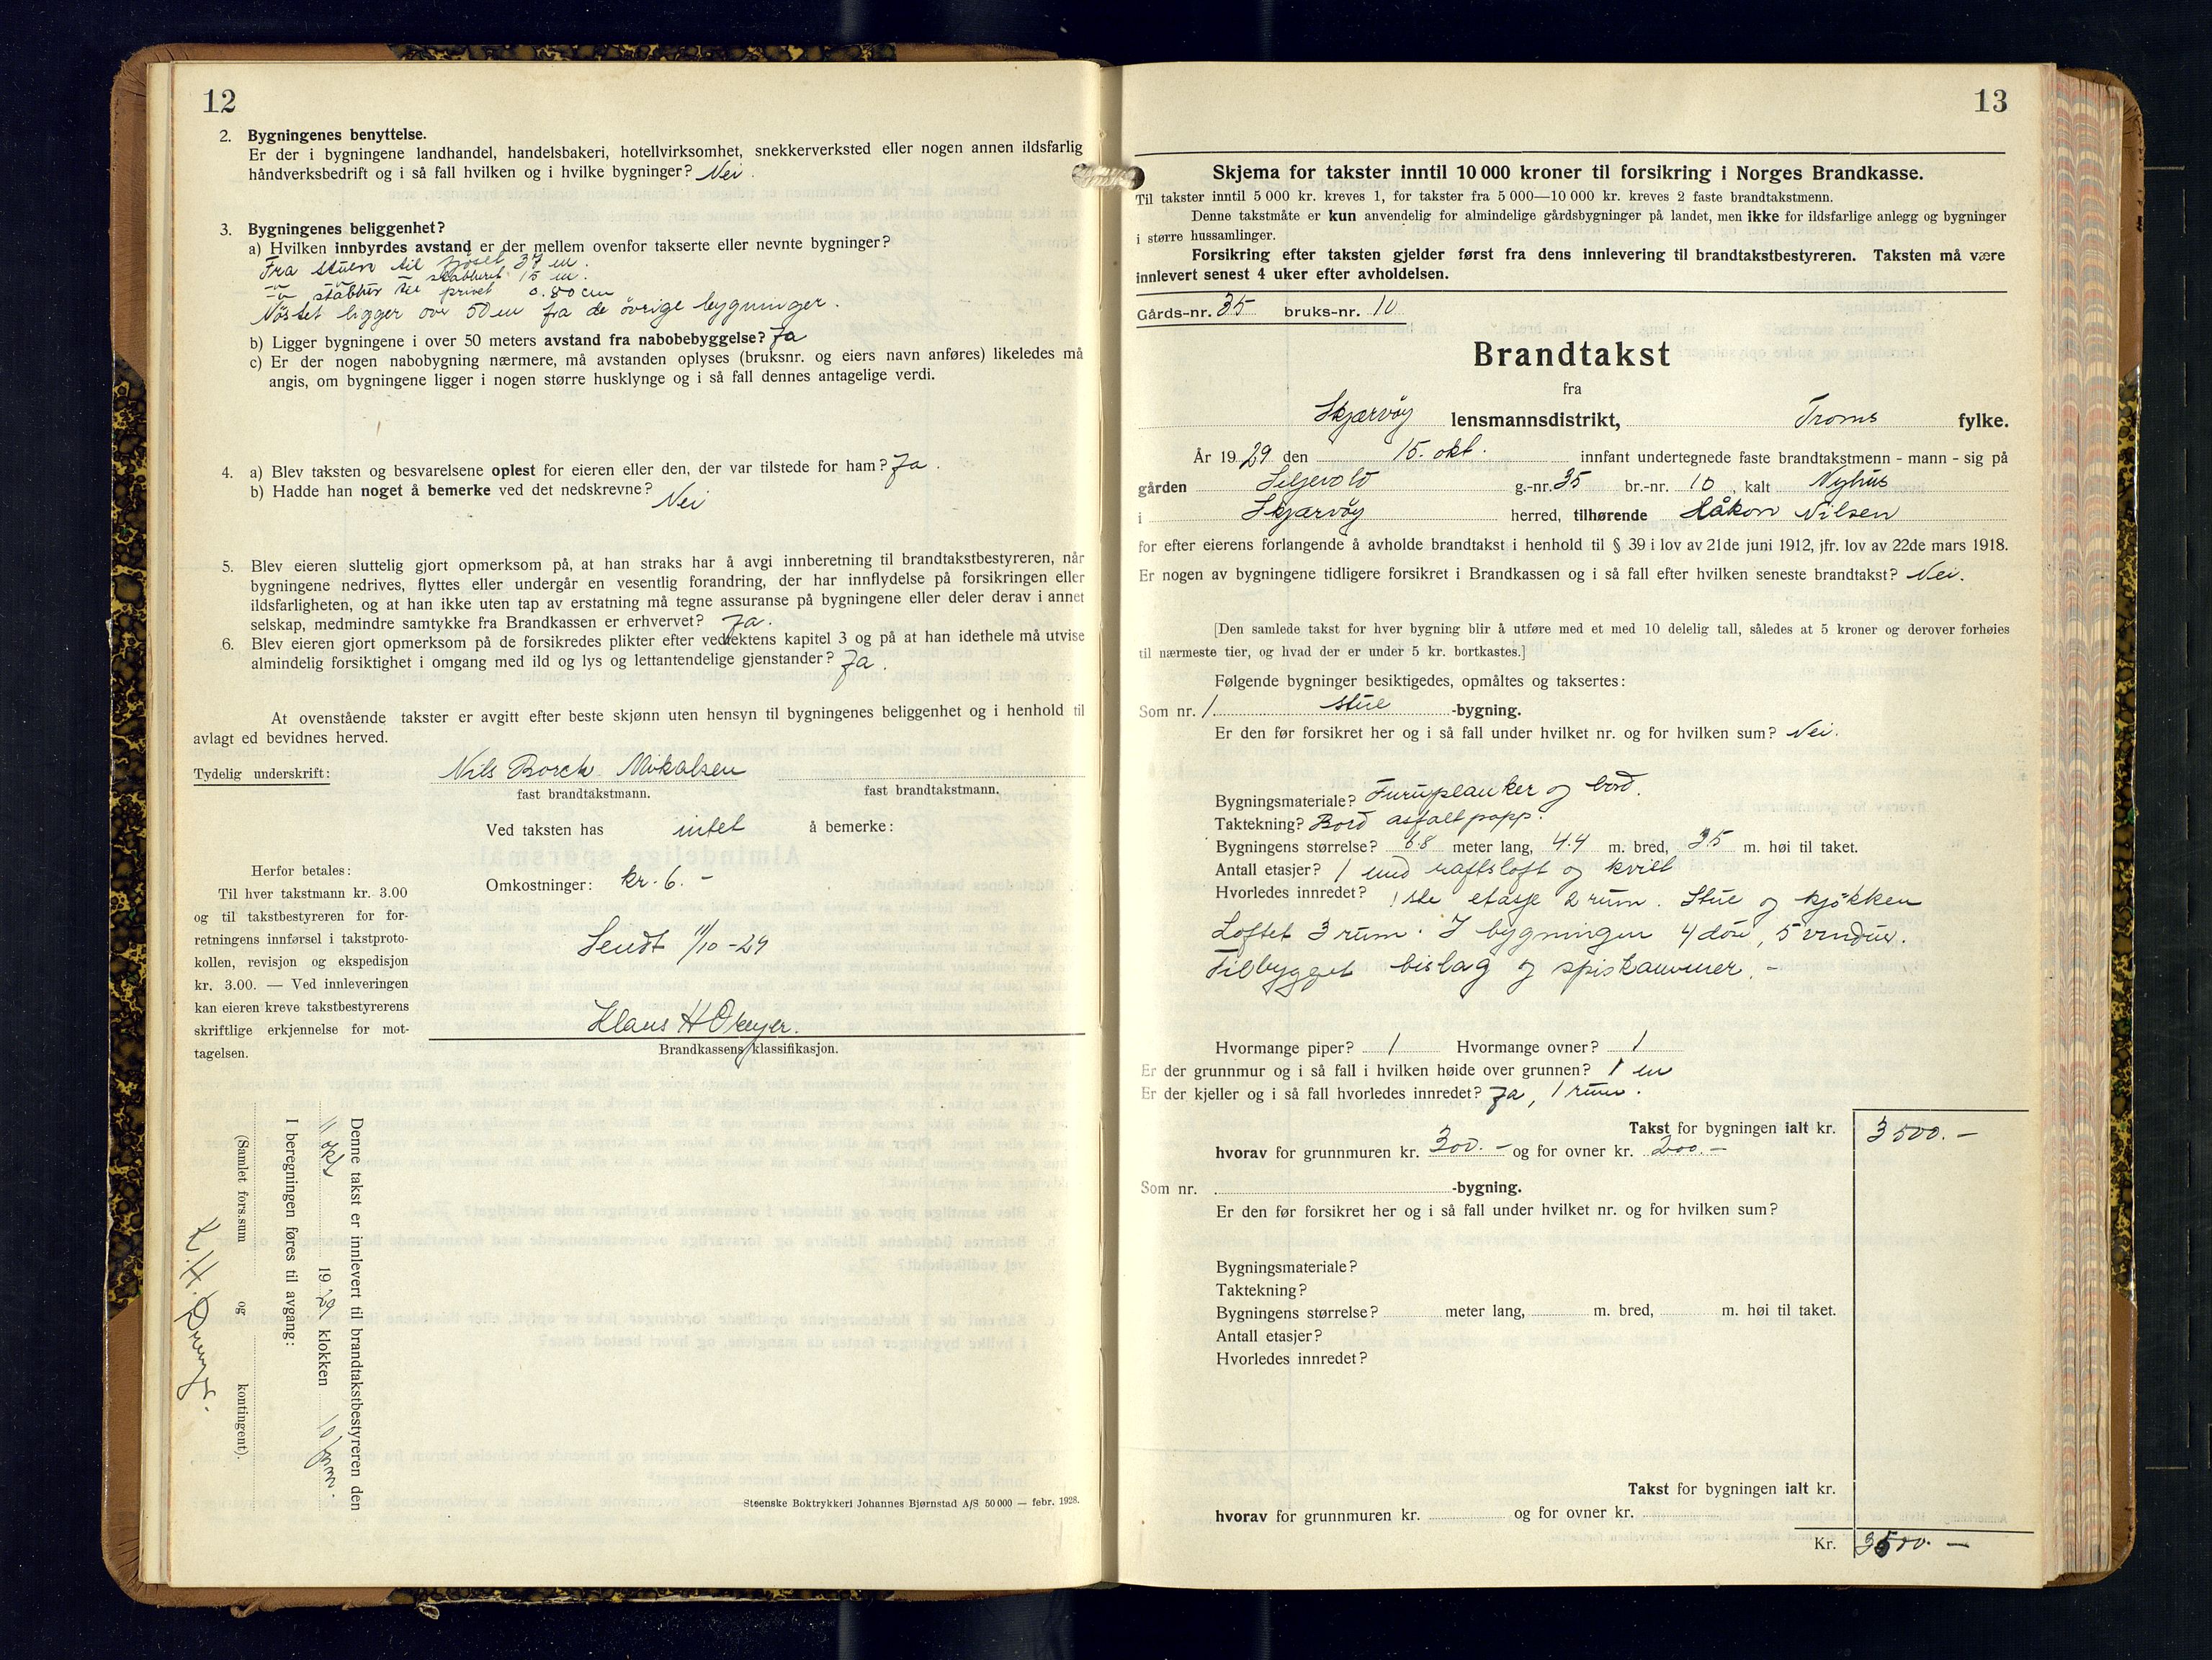 12
2. Bygningenes benyttelse.
Er der i bygningene landhandel, handelsbakeri, hotellvirksomhet, snekkerverksted eller nogen annen ildsfarlig
håndverksbedrift og i så fall hvilken og i hvilke bygninger? Nei.
3. Bygningenes beliggenhet?
a) Hvilken innbyrdes avstand er der mellem ovenfor takserte eller nevnte bygninger?
Fra stuen til fjøset 37 m.
stabburet 15 m.
stabbur til privet 0.80 cm
Nöstet ligger over 50 m fra de övrige bygninger.
b) Ligger bygningene i over 50 meters avstand fra nabobebyggelse? Ja
c) Er der nogen nabobygning nærmere, må avstanden oplyses (bruksnr. og eiers navn anføres) likeledes må
angis, om bygningene ligger i nogen større husklynge og i så fall dennes antagelige verdi.
4. a) Blev taksten og besvarelsene oplest for eieren eller den, der var tilstede for ham? Ja.
b) Hadde han noget å bemerke ved det nedskrevne? Nei
5. Blev eieren sluttelig gjort opmerksom på, at han straks har å avgi innberetning til brandtakstbestyreren, når
bygningene nedrives, flyttes eller undergår en vesentlig forandring, der har innflydelse på forsikringen eller
ildsfarligheten, og at han ikke uten tap av erstatning må tegne assuranse på bygningene eller deler derav i annet
selskap, medmindre samtykke fra Brandkassen er erhvervet? Ja.
6. Blev eieren gjort opmerksom på de forsikredes plikter efter vedtektens kapitel 3 og på at han idethele må utvise
almindelig forsiktighet i omgang med ild og lys og lettantendelige gjenstander? Ja.
At ovenstående takster er avgitt efter beste skjønn uten hensyn til bygningenes beliggenhet og i henhold til
avlagt ed bevidnes herved.
Tydelig underskrift: Nils Borch Mikalsen
fast brandtakstmann. fast brandtakstmann.
Ved taksten has intet å bemerke:
Omkostninger: kr. 6. -
Herfor betales:
Til hver takstmann kr. 3.00
og til takstbestyreren for for-
retningens innførsel i takstproto-
kollen, revisjon og ekspedisjon
kr. 3.00. — Ved innleveringen
kan eieren kreve takstbestyrerens
skriftlige erkjennelse for mot-
tagelsen.
Sendt 11/10 -29
Klaus H
Brandkassens klassifikasjon.
Denne takst er innlevert til brandtakstbestyreren den
11 okt 1929 klokken 10
I beregningen føres til avgang:
(Samlet fors.sum og kontingent).
K. H.
Steenske Boktrykkeri Johannes Bjørnstad A/S 50 000 — febr. 1928.
13
Skjema for takster inntil 10 000 kroner til forsikring i Norges Brandkasse.
Til takster inntil 5 000 kr. kreves 1, for takster fra 5 000—10 000 kr. kreves 2 faste brandtakstmenn.
Denne takstmåte er kun anvendelig for almindelige gårdsbygninger på landet, men ikke for ildsfarlige anlegg og bygninger
i større hussamlinger.
Forsikring efter taksten gjelder først fra dens innlevering til brandtakstbestyreren. Taksten må være
innlevert senest 4 uker efter avholdelsen.
Gårds-nr. 35 bruks-nr. 10
Brandtakst
fra
Skjærvöy lensmannsdistrikt, Troms fylke.
År 1929 den 15. okt. innfant undertegnede faste brandtakstmenn - mann - sig på
gården Seljevold g.-nr. 35 br.-nr. 10, kalt Nyhus
i Skjærvöy herred, tilhørende Håkon Nilsen
for efter eierens forlangende å avholde brandtakst i henhold til § 39 i lov av 21de juni 1912, jfr. lov av 22de mars 1918.
Er nogen av bygningene tidligere forsikret i Brandkassen og i så fall efter hvilken seneste brandtakst? Nei.
[Den samlede takst for hver bygning blir å utføre med et med 10 delelig tall, således at 5 kroner og derover forhøies
til nærmeste tier, og hvad der er under 5 kr. bortkastes.]
Følgende bygninger besiktigedes, opmåltes og taksertes:
Som nr. 1 stue -bygning.
Er den før forsikret her og i så fall under hvilket nr. og for hvilken sum? Nei.
Bygningsmateriale? Furuplanker og bord.
Taktekning? Bord asfaltpapp.
Bygningens størrelse? 6.8 meter lang, 4.4 m. bred, 3.5 m. høi til taket.
Antall etasjer? 1 med raftsloft og kvist
Hvorledes innredet? 1ste etasje 2 rum. Stue og kjökken
Loftet 3 rum. I bygningen 4 döre, 5 vinduer.
Tilbygget bislag og spiskammer. -
Hvormange piper? 1 Hvormange ovner? 1
Er der grunnmur og i så fall i hvilken høide over grunnen? 1 m
Er der kjeller og i så fall hvorledes innredet? Ja, 1 rum.
Takst for bygningen ialt kr. 3500. -
hvorav for grunnmuren kr. 300. - og for ovner kr. 200. -
Som nr. -bygning.
Er den før forsikret her og i så fall under hvilket nr. og for hvilken sum?
Bygningsmateriale?
Taktekning?
Bygningens størrelse? meter lang, m. bred, m. høi til taket.
Antall etasjer?
Hvorledes innredet?
Takst for bygningen ialt kr.
hvorav for grunnmuren kr. og for ovner kr.
Kr. 3500. -